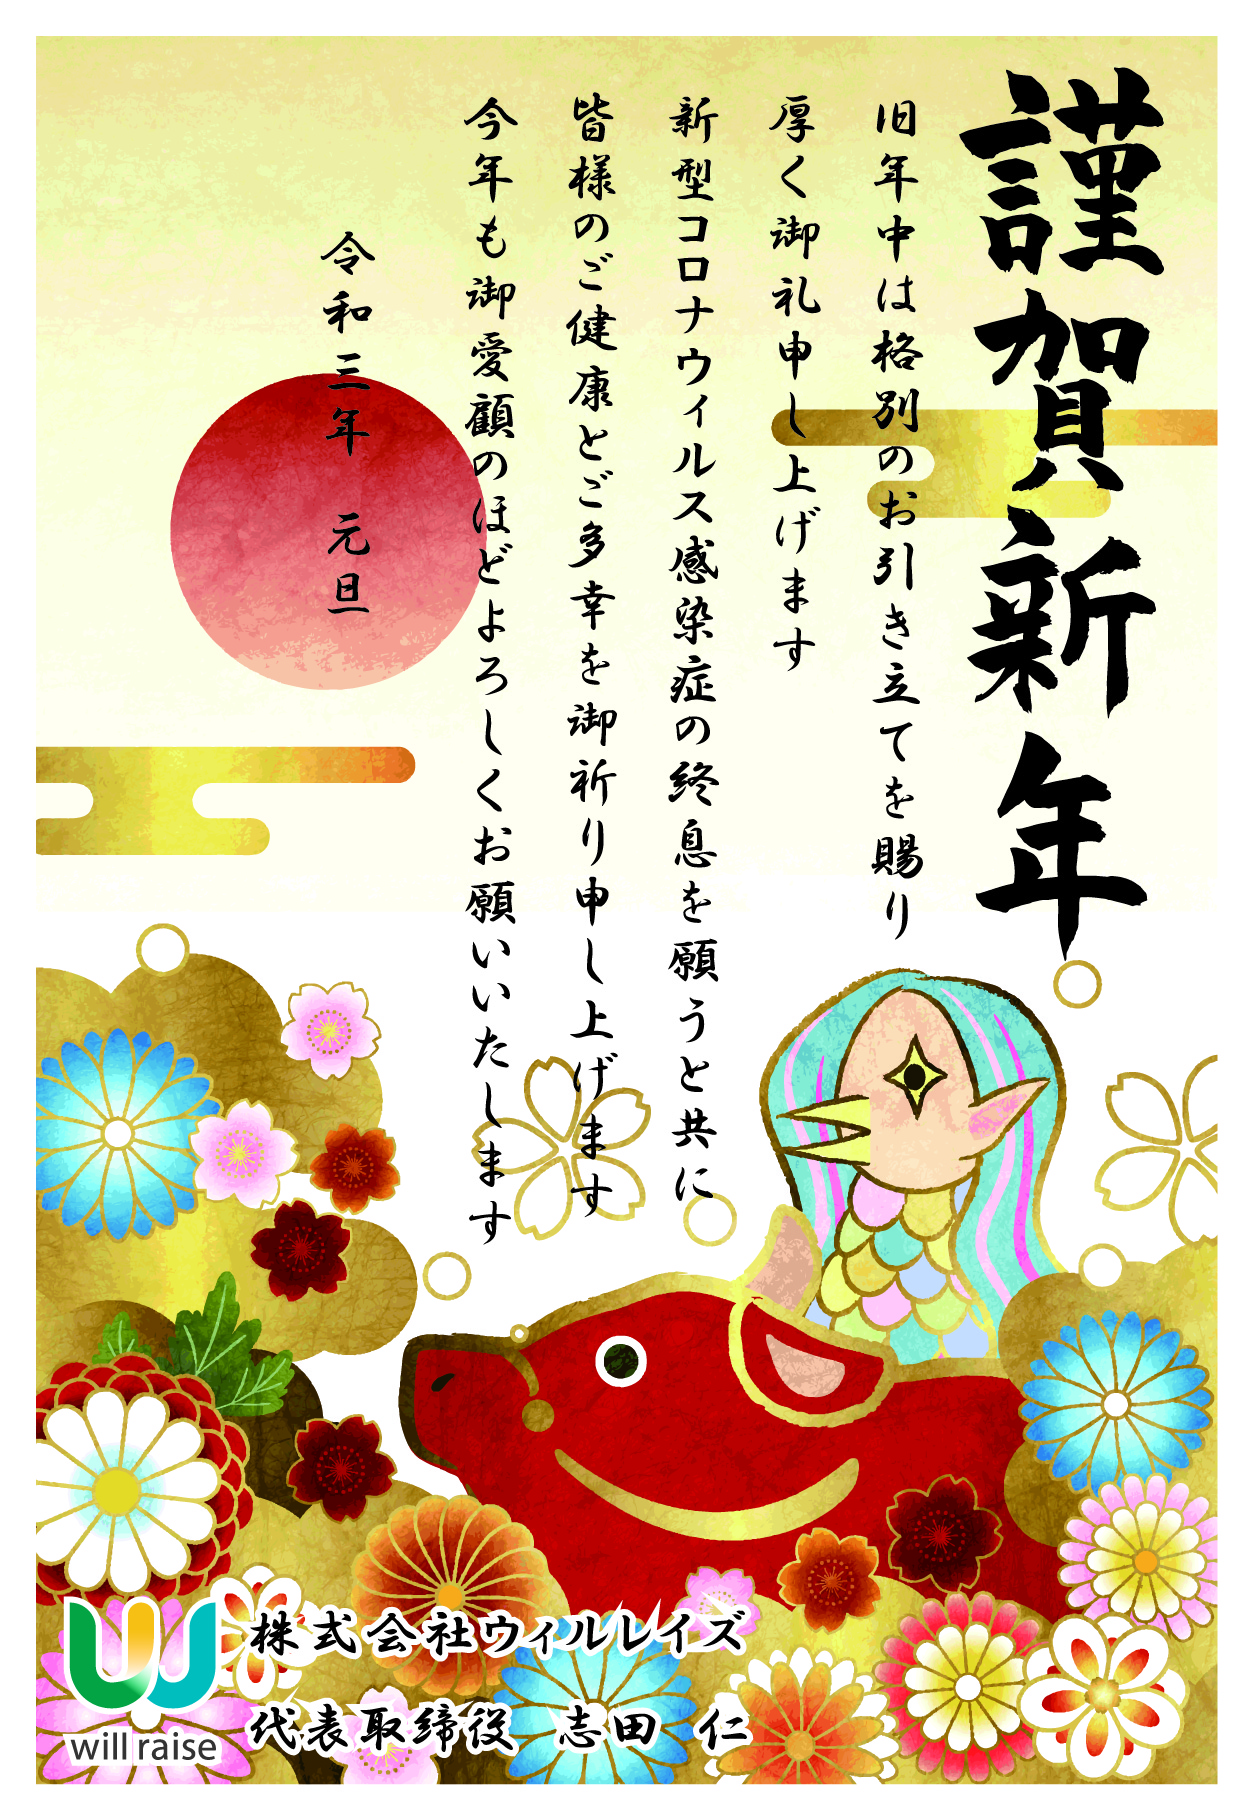 謹賀新年
旧年中は格別のお引き立てを賜り
厚く御礼申し上げます
新型コロナウィルス感染症の終息を願うと共に
皆様のご健康とご多幸を御祈り申し上げます
今年も御愛顧のほどよろしくお願いいたします
令和三年 元旦
株式会社ウィルレイズ
代表取締役 志田 仁
will raise